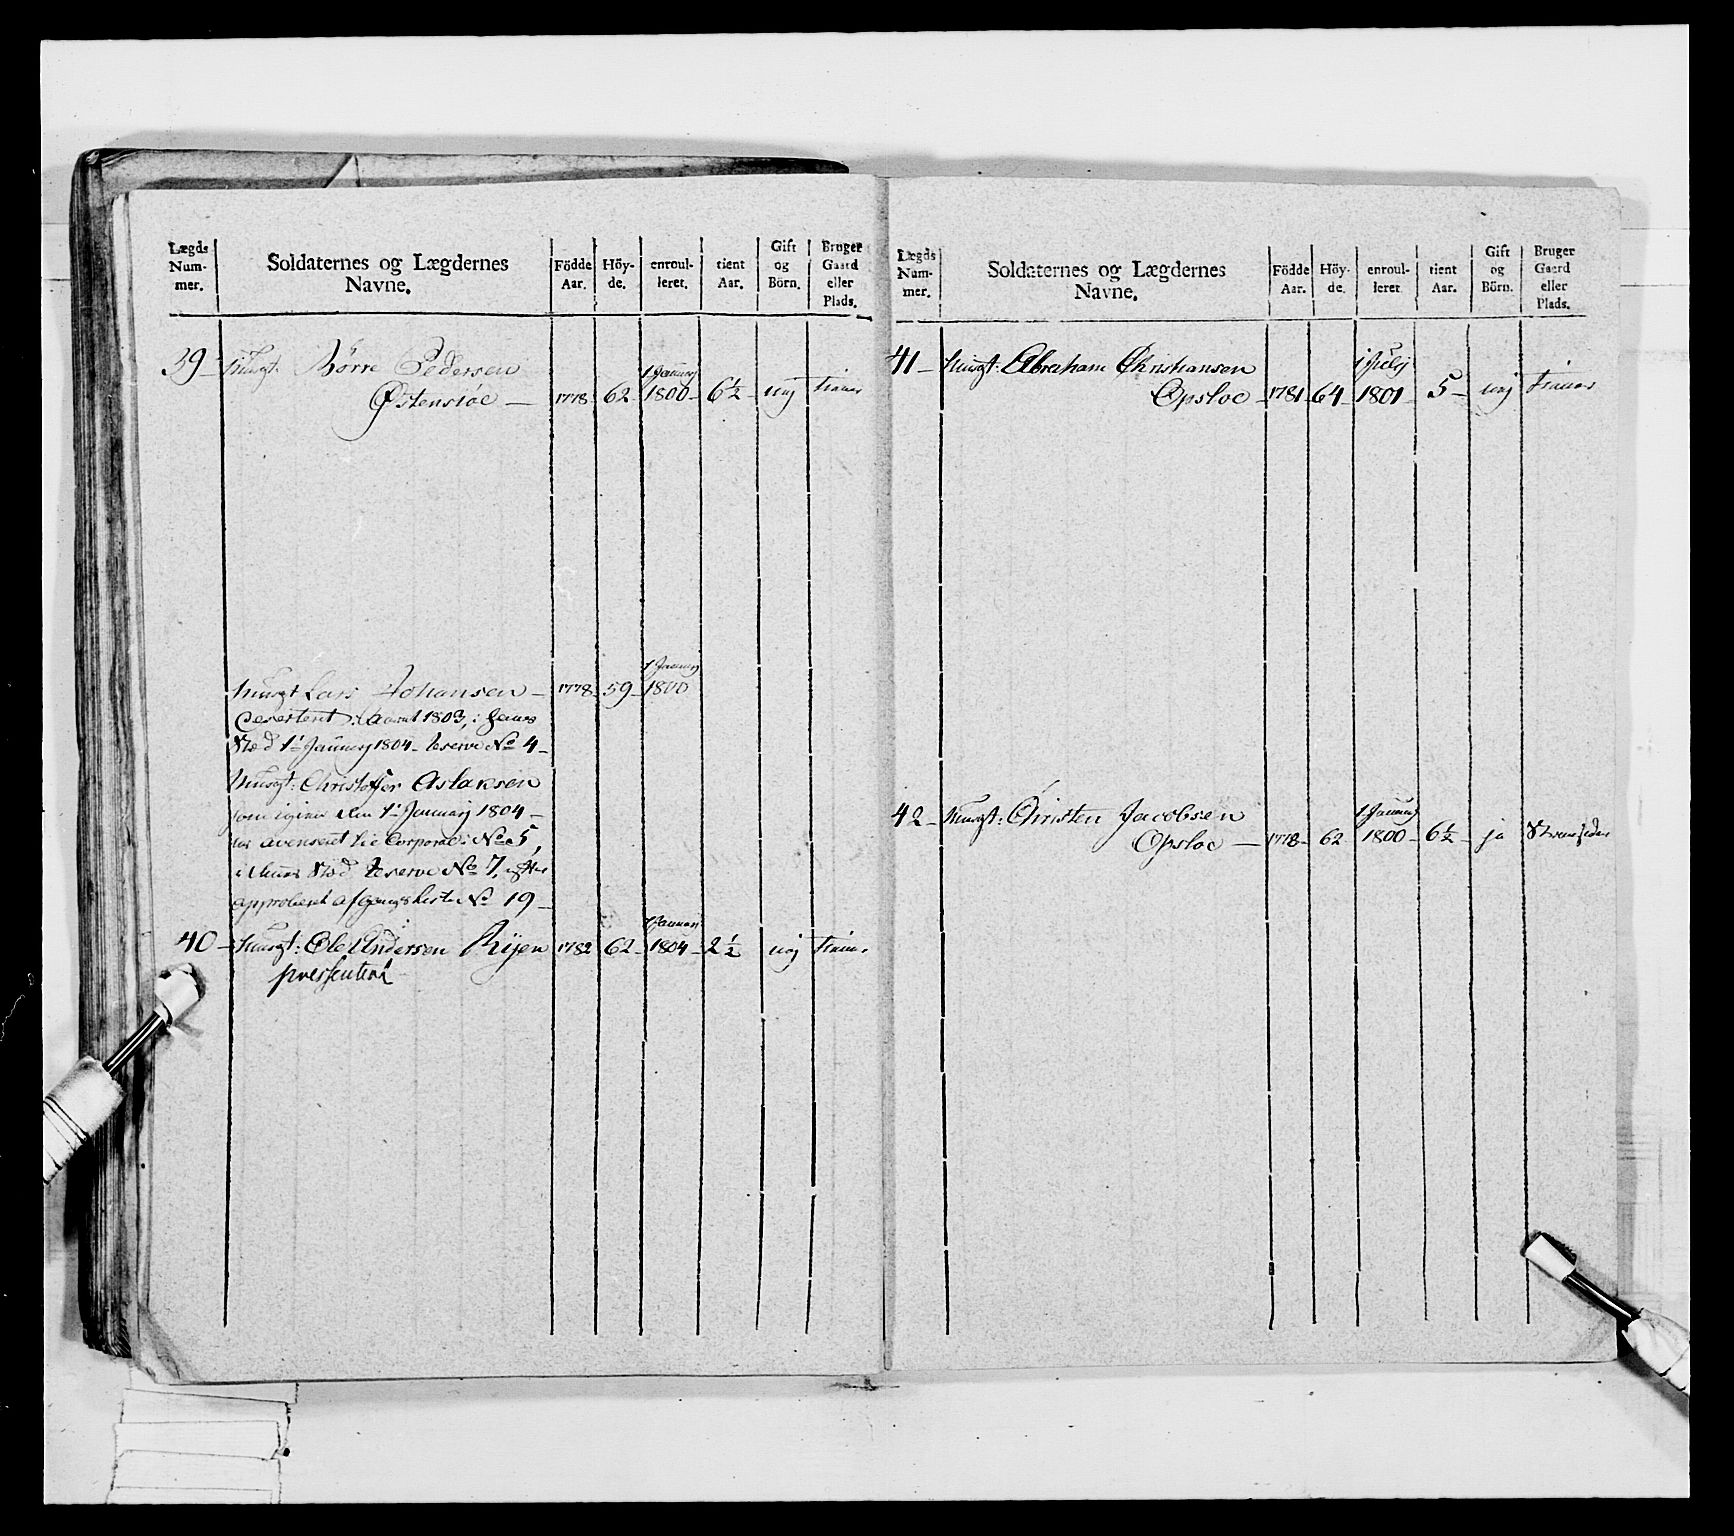 Lægds Num- mer.
Soldaternes og Lægdernes Navne.
Födde Aar.
Höy- de.
enroul- leret.
tient Aar.
Gift og Börn.
Bruger Gaard eller Plads.
39 - Musqt: Börre Pedersen
Østensiöe — 1778 - 62 - 1 Januarij 1800 - 6½ - nej tiener
Musqt Lars Johansen — 1778 - 59 - 1 Januarij 1800
Deserteret 1803, i hans
Sted 1. Januarij 1804 - reserve No 4 -
Musqt: Christoffer Aslaksen
som igien den 1. Januarij 1804 -
er avenseret til Corporal: No 5,
i hans Sted reserve No 7, efter
approberet afgangs Liste No 19 -
40 - Musqt: Ole Andersen Rijen 1782 62 - 1 Januarij 1804 - 2½ nej tiener
Lægds Num- mer.
Soldaternes og Lægdernes Navne.
Födde Aar.
Höy- de.
enroul- leret.
tient Aar.
Gift og Börn.
Bruger Gaard eller Plads.
41 - Musqt: Abraham Christiansen
Opsloe - 1781 - 64 - 1 Julij 1801 - 5 - nej tiener
42 - Musqt: Christen Jacobsen
Opsloe — 1778 - 62 - 1 Januarij 1800 - 6½ - ja Strandsider